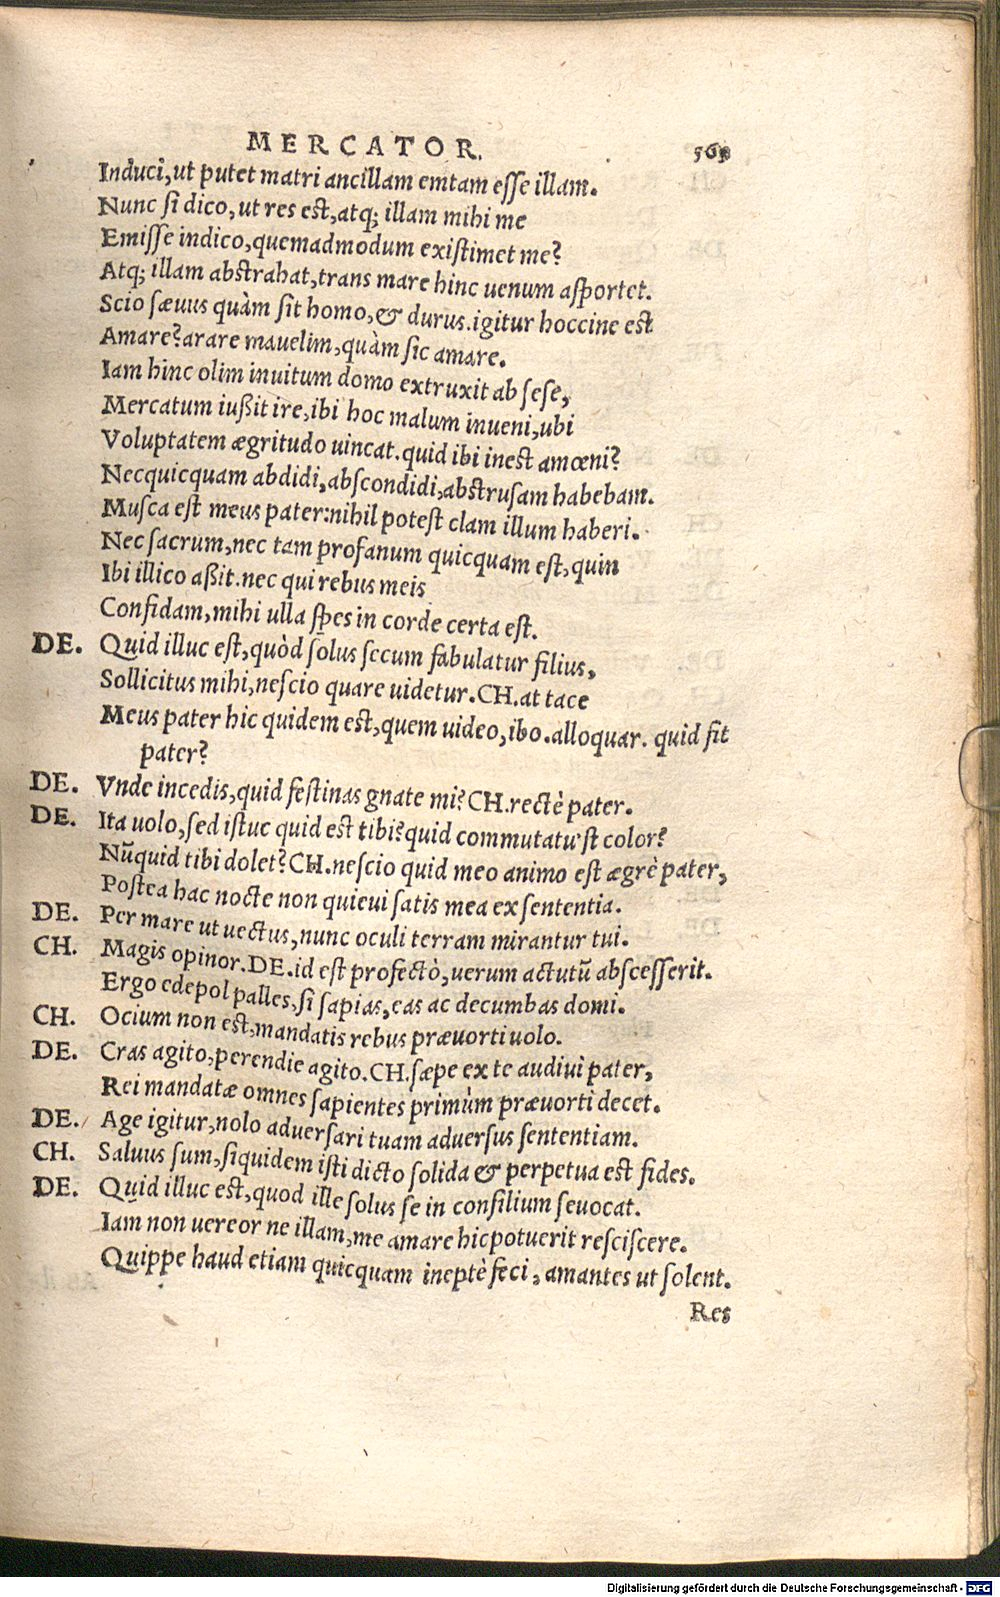 MERCATOR.
Induci, ut putet matri ancillam emtam esse illam.
Nunc si dico, ut res est, atq; illam mihi me
Emisse indico, quemadmodum existimet me?
Atq; illam abstrahat, trans mare hinc uenum asportet.
Scio sæuus quàm sit homo, & durus. igitur hoccine est
Amare? arare mauelim, quàm sic amare.
Iam hinc olim inuitum domo extruxit ab sese,
Mercatum iußit ire, ibi hoc malum inueni, ubi
Voluptatem ægritudo uincat. quid ibi inest amœni?
Necquicquam abdidi, abscondidi, abstrusam habebam.
Musca est meus pater: nihil potest clam illum haberi.
Nec sacrum, nec tam profanum quicquam est, quin
Ibi illico aßit. nec qui rebus meis
Confidam, mihi ulla spes in corde certa est.
DE. Quid illuc est, quòd solus secum fabulatur filius,
Sollicitus mihi, nescio quare uidetur. CH. at tace
Meus pater hic quidem est, quem uideo, ibo. alloquar. quid fit
pater?
DE. Vnde incedis, quid festinas gnate mi? CH. rectè pater.
DE. Ita uolo, sed istuc quid est tibi? quid commutatu'st color?
Nũquid tibi dolet? CH. nescio quid meo animo est ægrè pater,
Postea hac nocte non quieui satis mea ex sententia.
DE. Per mare ut uectus, nunc oculi terram mirantur tui.
CH. Magis opinor. DE. id est profectò, uerum actutũ abscesserit.
Ergo edepol palles, si sapias, eas ac decumbas domi.
CH. Ocium non est, mandatis rebus præuorti uolo.
DE. Cras agito, perendie agito. CH. sæpe ex te audiui pater,
Rei mandatæ omnes sapientes primùm præuorti decet.
DE. Age igitur, nolo aduersari tuam aduersus sententiam.
CH. Saluus sum, siquidem isti dicto solida & perpetua est fides.
DE. Quid illuc est, quod ille solus se in consilium seuocat.
Iam non uereor ne illam, me amare hic potuerit resciscere.
Quippe haud etiam quicquam ineptè feci, amantes ut solent.
Res
Digitalisierung gefördert durch die Deutsche Forschungsgemeinschaft - DFG